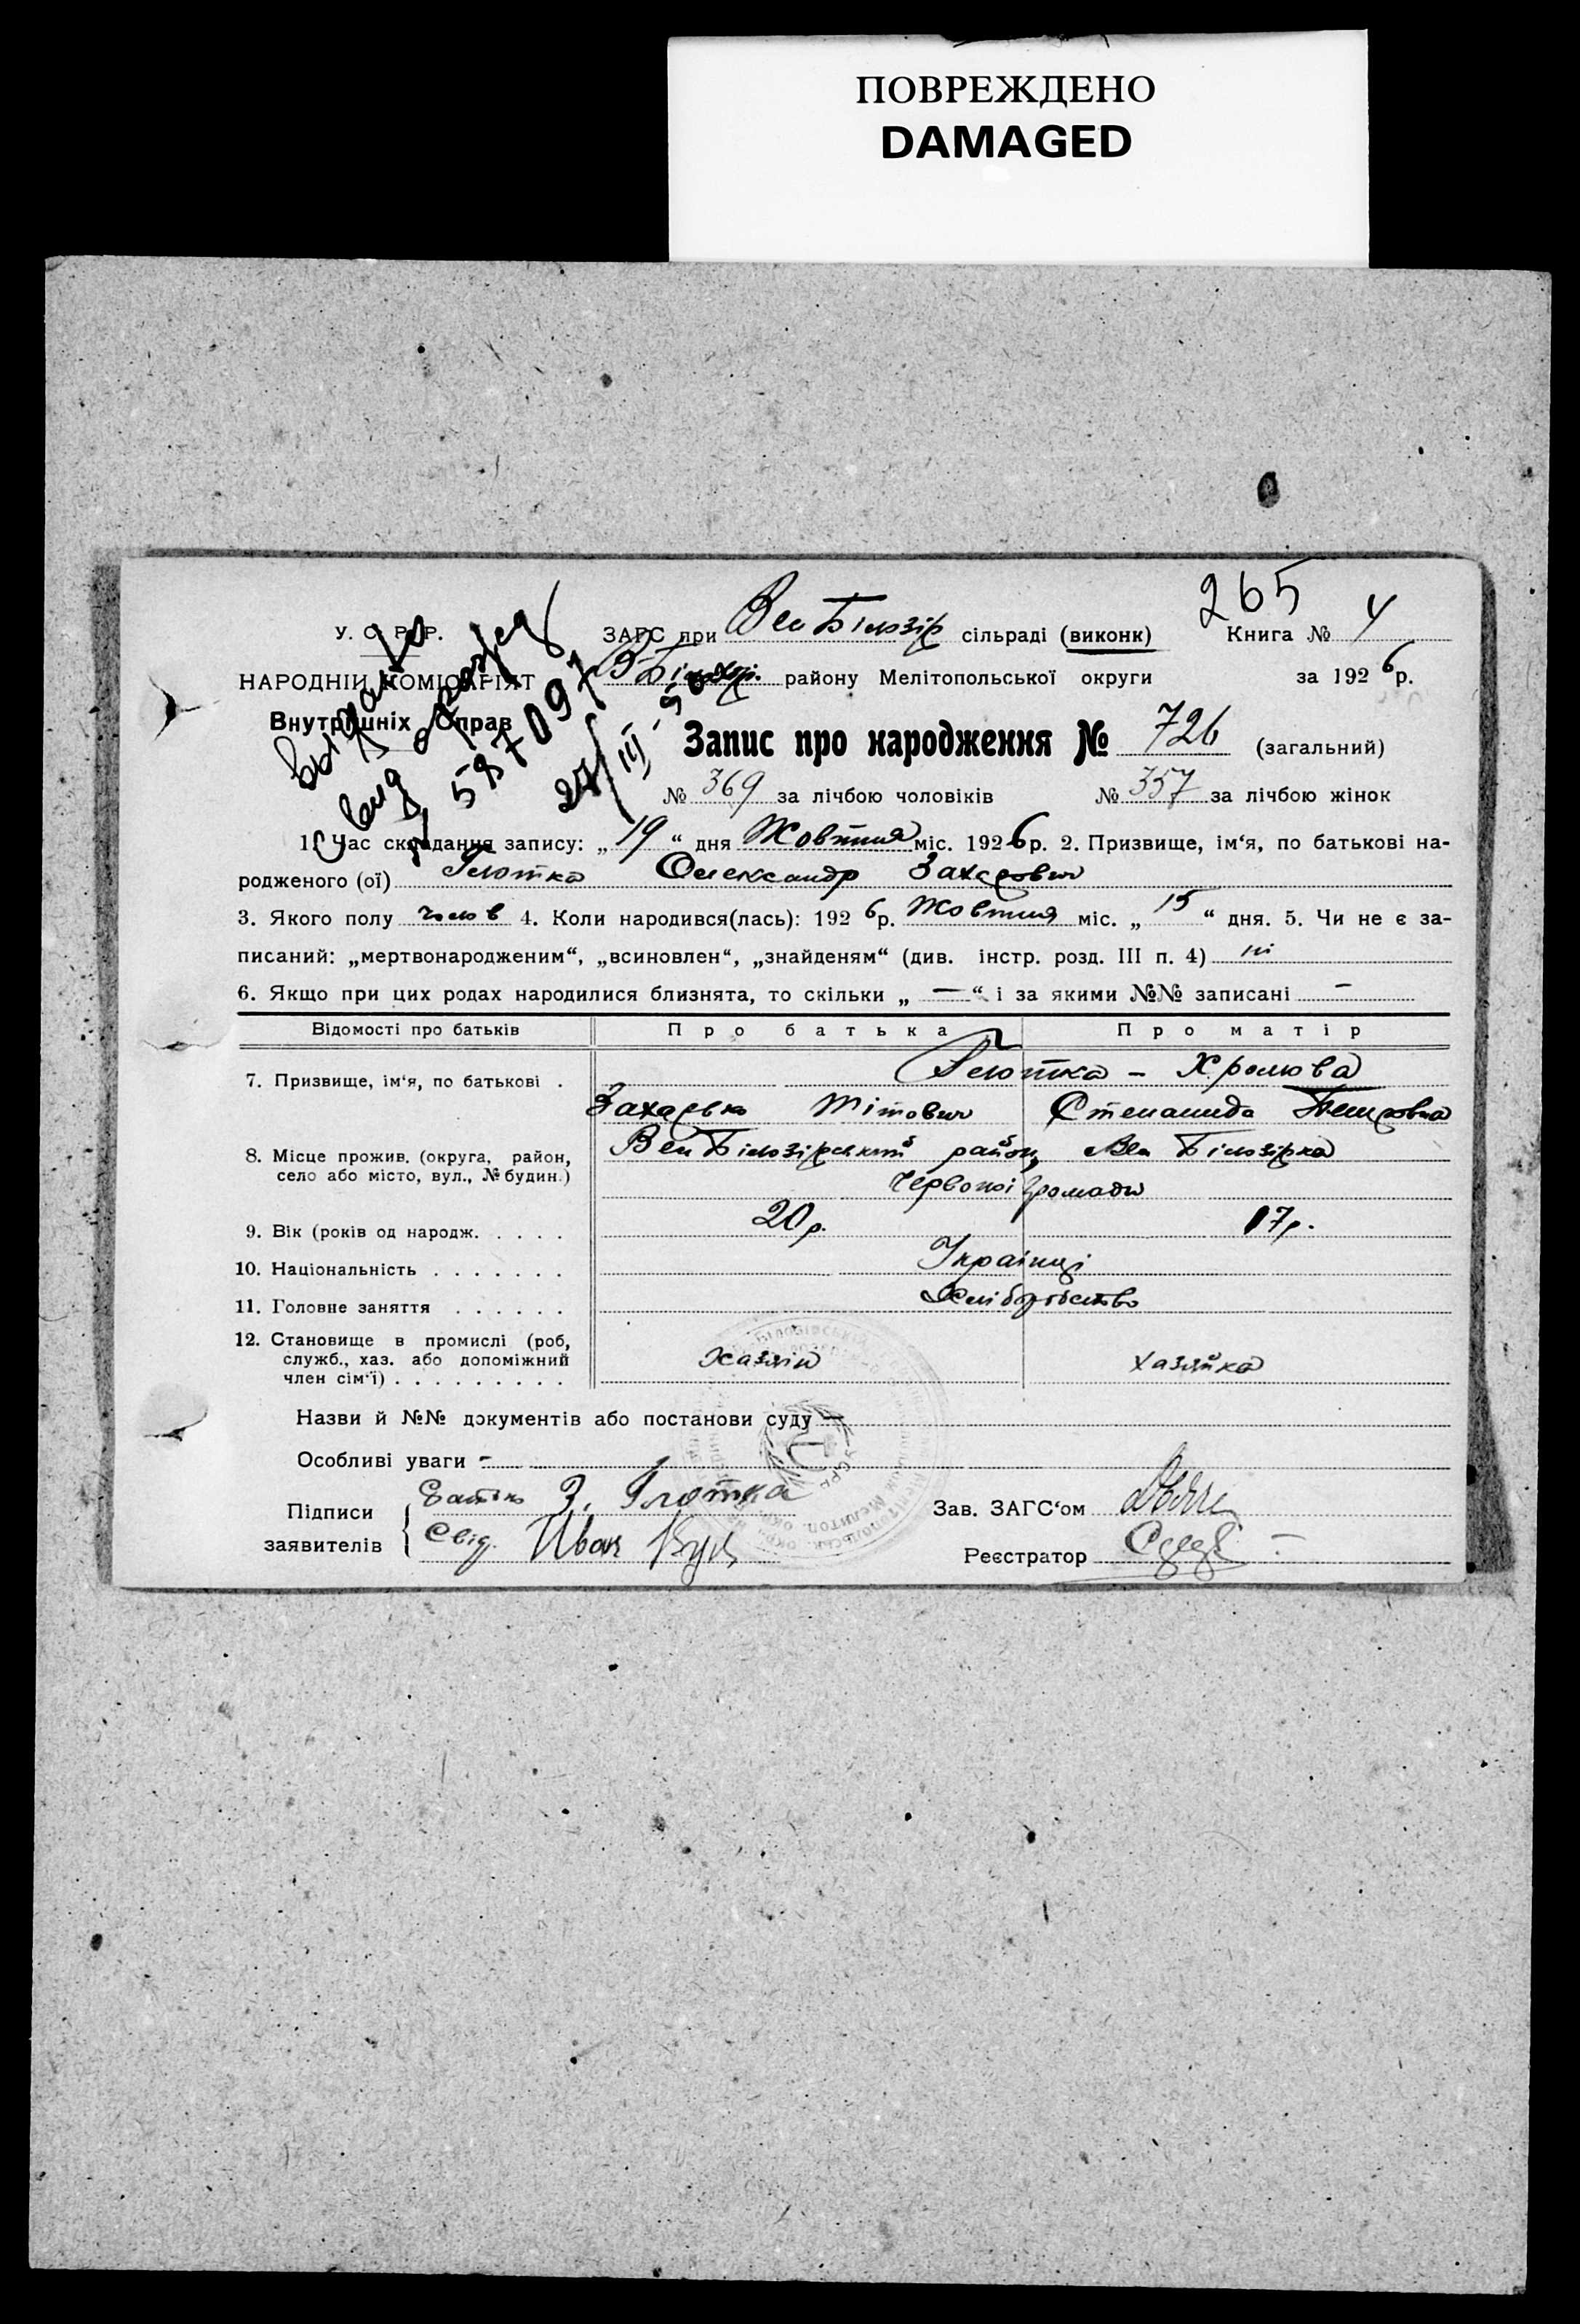 ПОВРЕЖДЕНО
DAMAGED
265
У. С. Р. Р.
ЗАГС при Вел Білозір сільраді (виконк) Книга № 4
НАРОДНІЙ КОМІСАРІЯТ
В Білозір. району Мелітопольської округи за 1926 р.
Внутрішніх Справ
Выдано
587097
27/III-56
Запис про народження № 726 (загальний)
№ 369 за лічбою чоловіків № 357 за лічбою жінок
1. Час складання запису: „19“ дня Жовтня міс. 1926 р. 2. Призвище, ім‘я, по батькові на-
родженого (ої) Глотка Олександр Захарович
3. Якого полу чолов 4. Коли народився(лась): 1926 р. Жовтня міс. „15“ дня. 5. Чи не є за-
писаний: „мертвонародженим“, „всиновлен“, „знайденям“ (див. інстр. розд. III п. 4) ні
6. Якщо при цих родах народилися близнята, то скільки „ — “ і за якими №№ записані —
Відомості про батьків Про батька Про матір
7. Призвище, ім‘я, по батькові . Глотка - Хролова
Захарько Тітович Степанида Петровна
8. Місце прожив. (округа, район, Вел Білозірський район, Вел Білозірка
село або місто, вул., № будин.) Червоної громади
9. Вік (років од народж. . . . . 20 р. 17 р.
10. Національність . . . . . . . Українці
11. Головне заняття . . . . . . Хліборобство
12. Становище в промислі (роб,
служб., хаз. або допоміжний хазяін хазяйка
член сім‘ї) . . . . . . . . .
Назви й №№ документів або постанови суду —
Особливі уваги -
Підписи Батько З. Глотка Зав. ЗАГС‘ом
заявителів Свід. Иван Реєстратор